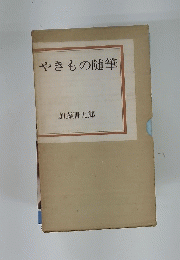 やきもの随筆
加藤唐九郎